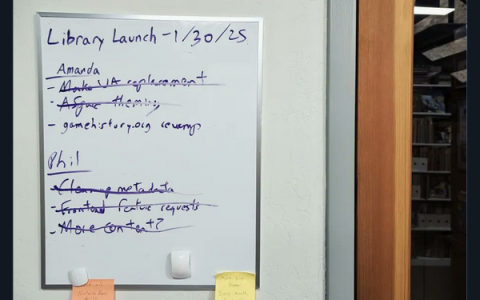 Library Launch - 1/30/25
Amanda
- Make UA replacement
- ASpace theming
- gamehistory.org revamp
Phil
- Cleanup metadata
- Frontend feature requests
- More content?